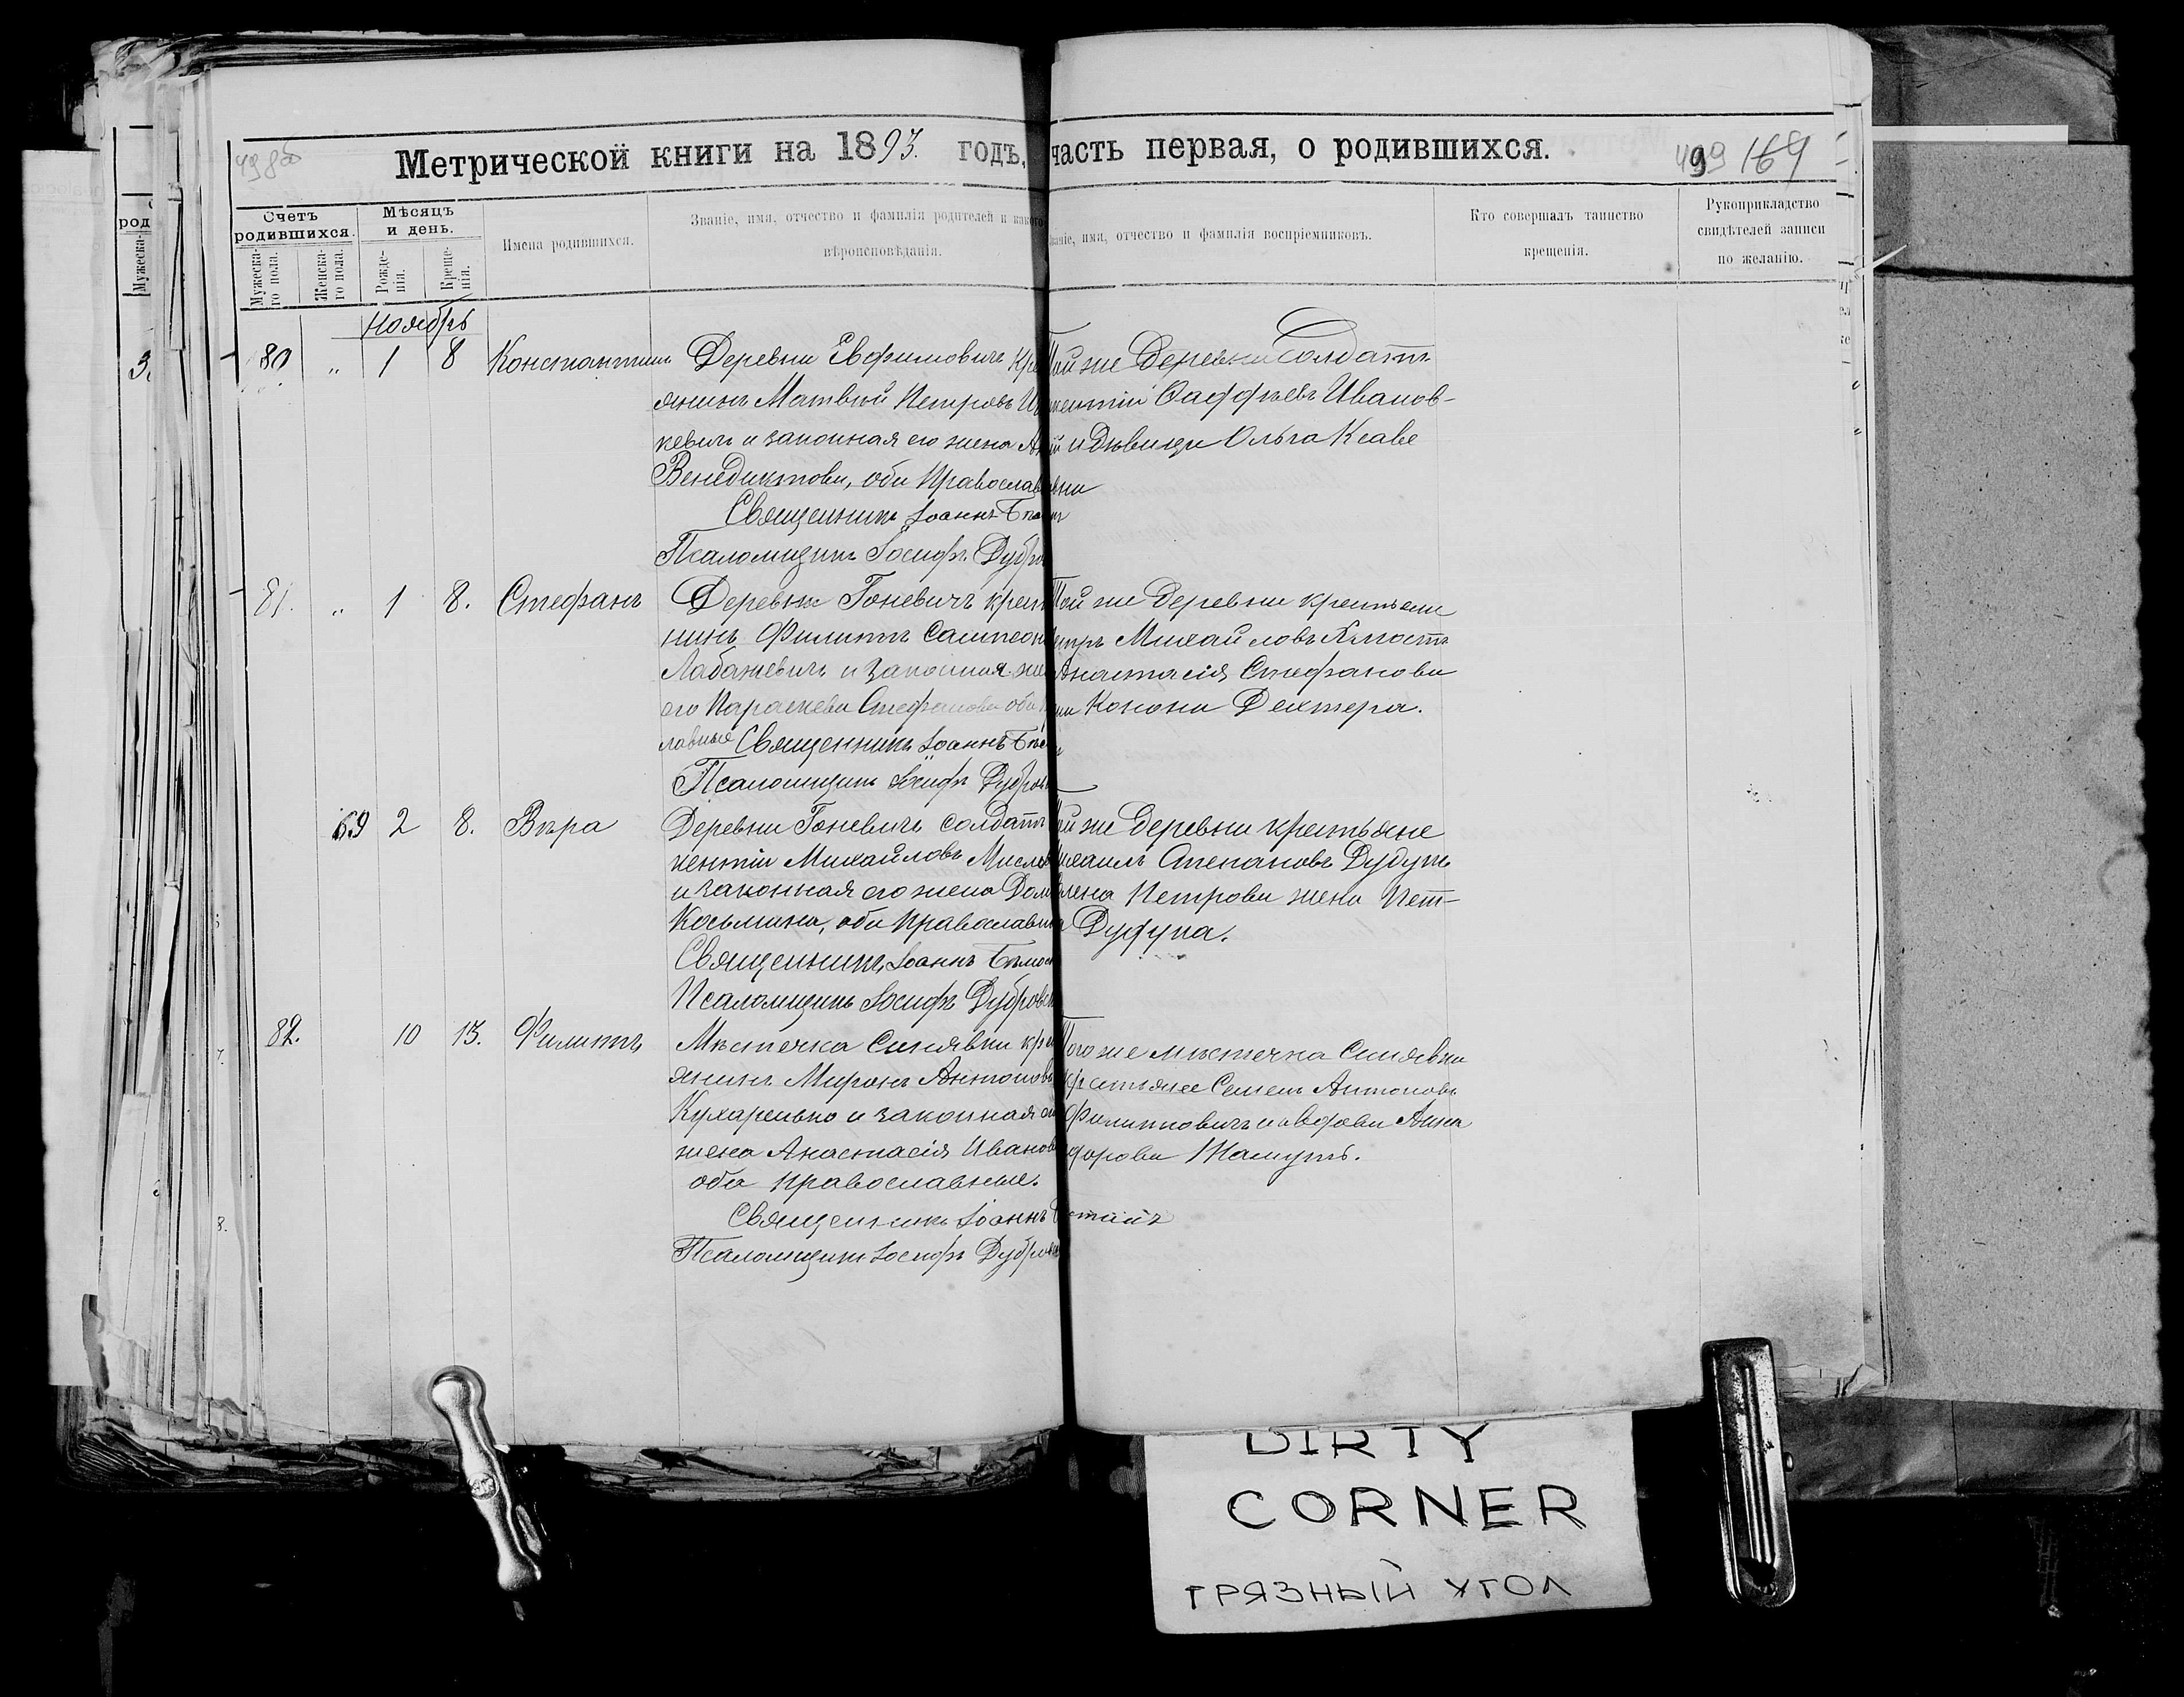 Метрической книги на 1893. годъ, часть первая, о родившихся.
499 169
Счетъ родившихся.
Мужеска-го пола.
Женска-го пола.
Мѣсяцъ и день.
Рожде-нія.
Креще-нія.
Имена родившихся.
Званіе, имя, отчество и фамилія родителей и какого
вѣроисповѣданія.
Званіе, имя, отчество и фамилія воспріемниковъ.
Кто совершалъ таинство
крещенія.
Рукоприкладство
свидѣтелей записи
по желанію.
Ноябрь
80 „ 1 8 Константинъ
Деревни Евфимовичъ кре
янинъ Матвѣй Петровъ
кевичъ и законная его жена
Венедиктова, оба Православны
Священникъ Іоаннъ
Псаломщикъ Іосифъ Дубро
Той же Деревни Солдатъ
Ѳаддѣевъ Иванов-
и Дѣвица Ольга
81. „ 1 8. Стефанъ
Деревни Гоневичъ крест
нинъ Филиппъ Сампсон
Лабажевичъ и законная же
его Параскева Стефанова оба
лавные Священникъ Іоаннъ
Псаломщикъ Іосифъ Дубров
Той же деревни крестьяне
Михайловъ
Анастасія Стефанова
Конона Дехтера.
69 2 8. Вѣра
Деревни Гоневичъ солдатъ
кентій Михайловъ
и законная его жена Дом
Косьмина, оба православны
Священникъ Іоаннъ
Псаломщикъ Іосифъ Дубровск
же деревни крестьяне
Михаилъ Степановъ
Елена Петрова жена Пет-
82. 10 13. Филиппъ
Мѣстечка Синявки кре
янинъ Миронъ Антоновъ
Кухаренко и законная его
жена Анастасія Иванов
оба православные.
Священникъ Іоаннъ
Псаломщикъ Іосифъ Дубровск
Того же мѣстечка Синявки
крестьяне Семенъ Антоновъ
Филипповичъ и вдова Анна
DIRTY
CORNER
ГРЯЗНЫЙ УГОЛ